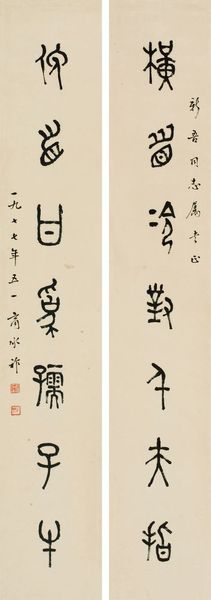 新吾同志属书正
橫眉冷對千夫指
俯首甘為孺子牛
一九七七年五一商承祚